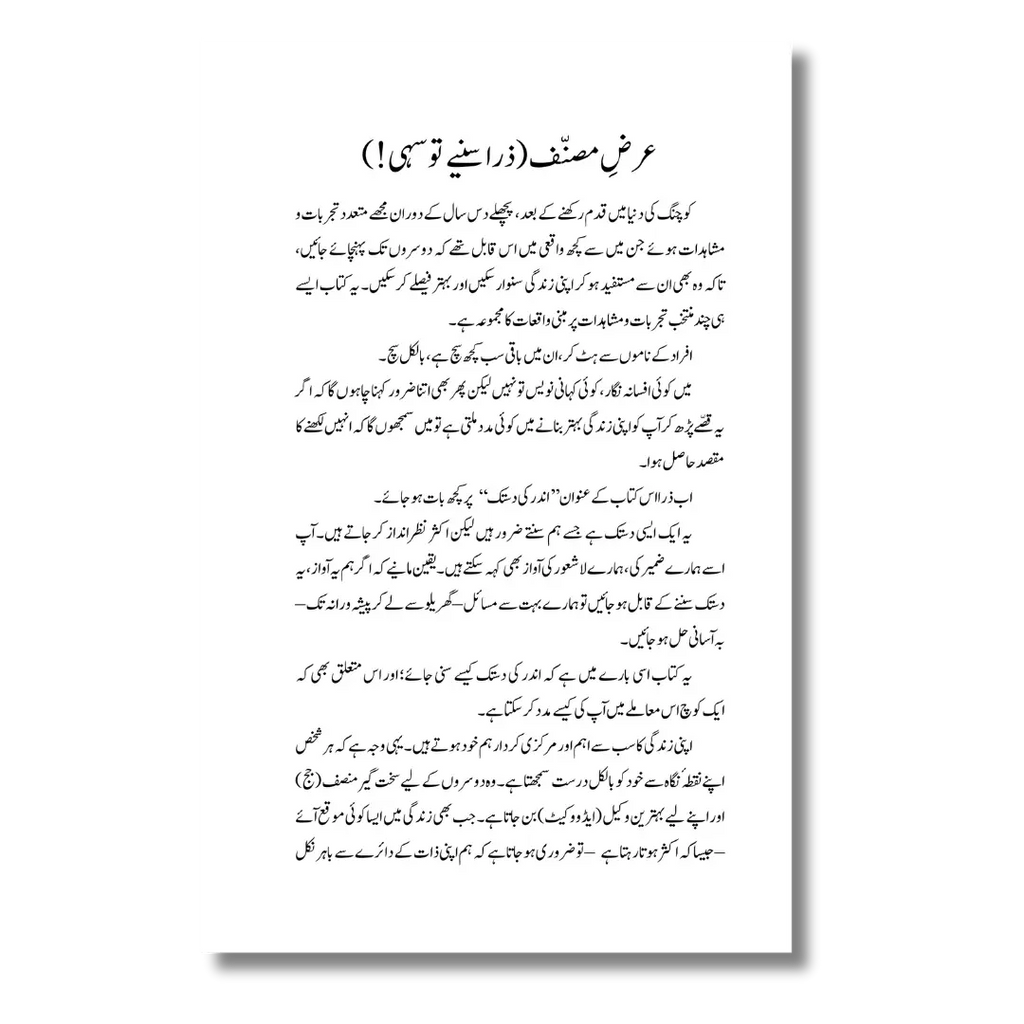 عرضِ مصنّف (ذرا سنیے تو سہی!)
کوچنگ کی دنیا میں قدم رکھنے کے بعد، پچھلے دس سال کے دوران مجھے متعدد تجربات و
مشاہدات ہوئے جن میں سے کچھ واقعی میں اس قابل تھے کہ دوسروں تک پہنچائے جائیں،
تاکہ وہ بھی ان سے مستفید ہو کر اپنی زندگی سنوار سکیں اور بہتر فیصلے کر سکیں۔ یہ کتاب ایسے
ہی چند منتخب تجربات و مشاہدات پر مبنی واقعات کا مجموعہ ہے۔
افراد کے ناموں سے ہٹ کر، ان میں باقی سب کچھ سچ ہے، بالکل سچ۔
میں کوئی افسانہ نگار، کوئی کہانی نویس تو نہیں لیکن پھر بھی اتنا ضرور کہنا چاہوں گا کہ اگر
یہ قصّے پڑھ کر آپ کو اپنی زندگی بہتر بنانے میں کوئی مدد ملتی ہے تو میں سمجھوں گا کہ انہیں لکھنے کا
مقصد حاصل ہوا۔
اب ذرا اس کتاب کے عنوان ”اندر کی دستک“ پر کچھ بات ہو جائے۔
یہ ایک ایسی دستک ہے جسے ہم سنتے ضرور ہیں لیکن اکثر نظر انداز کر جاتے ہیں۔ آپ
اسے ہمارے ضمیر کی، ہمارے لاشعور کی آواز بھی کہہ سکتے ہیں۔ یقین مانیے کہ اگر ہم یہ آواز، یہ
دستک سننے کے قابل ہو جائیں تو ہمارے بہت سے مسائل – گھریلو سے لے کر پیشہ ورانہ تک –
بہ آسانی حل ہو جائیں۔
یہ کتاب اسی بارے میں ہے کہ اندر کی دستک کیسے سنی جائے؛ اور اس متعلق بھی کہ
ایک کوچ اس معاملے میں آپ کی کیسے مدد کر سکتا ہے۔
اپنی زندگی کا سب سے اہم اور مرکزی کردار ہم خود ہوتے ہیں۔ یہی وجہ ہے کہ ہر شخص
اپنے نقطۂ نگاہ سے خود کو بالکل درست سمجھتا ہے۔ وہ دوسروں کے لیے سخت گیر منصف (جج)
اور اپنے لیے بہترین وکیل (ایڈووکیٹ) بن جاتا ہے۔ جب بھی زندگی میں ایسا کوئی موقع آئے
– جیسا کہ اکثر ہوتا رہتا ہے – تو ضروری ہو جاتا ہے کہ ہم اپنی ذات کے دائرے سے باہر نکل